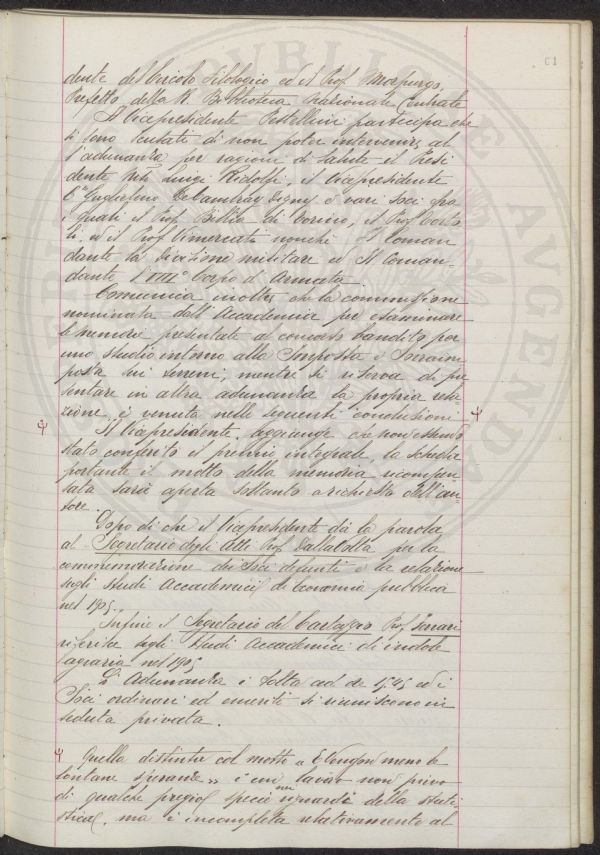 61
dente del Circolo Filologico ed il Prof. Morpurgo,
Prefetto della R. Biblioteca Nazionale Centrale
Il Vicepresidente Pestellini partecipa che
si sono scusati di non poter intervenire al
l'adunanza per ragioni di salute il Presi
dente Mse Luigi Ridolfi, il Vicepresidente
Guglielmo de Cambray Digny e vari Soci fra
i quali il Prof. di Torino, il Prof.
ed il Prof. Vimercati nonché Il Coman
dante la Divisione militare ed Il Coman-
dante l'VIII° Corpo d'Armata.
Comunica inoltre che la commissione
nominata dall'Accademia per esaminare
le memorie presentate al concorso bandito per
uno studio intorno alla Imposta e Sovraim
posta sui terreni, mentre si riserva di pre
sentare in altra adunanza la propria rela
zione, è venuta nelle seguenti conclusioni
Il Vicepresidente soggiunge che non essendo
stato conferito il premio integrale, la scheda
portante il motto della memoria ricompen
sata sarà aperta soltanto a richiesta dell'au
tore.
Dopo di che il Vicepresidente dà la parola
al Segretario degli Atti Prof. Dalla Volta per la
commemorazione dei Soci defunti e la relazione
sugli studi Accademici di Economia pubblica
nel 1905.
Infine il Segretario del Carteggio Prof. Ferrari
riferisce sugli studi Accademici di indole
agraria nel 1905
L'Adunanza è sciolta ad ore 15,45 ed i
Soci ordinari ed emeriti si riuniscono in
seduta privata.
ψ Quella distinta col motto "E vengon meno le
lontane speranze" è un lavoro non privo
di qualche pregio specie nei riguardi della stati
stica, ma è incompleta relativamente al